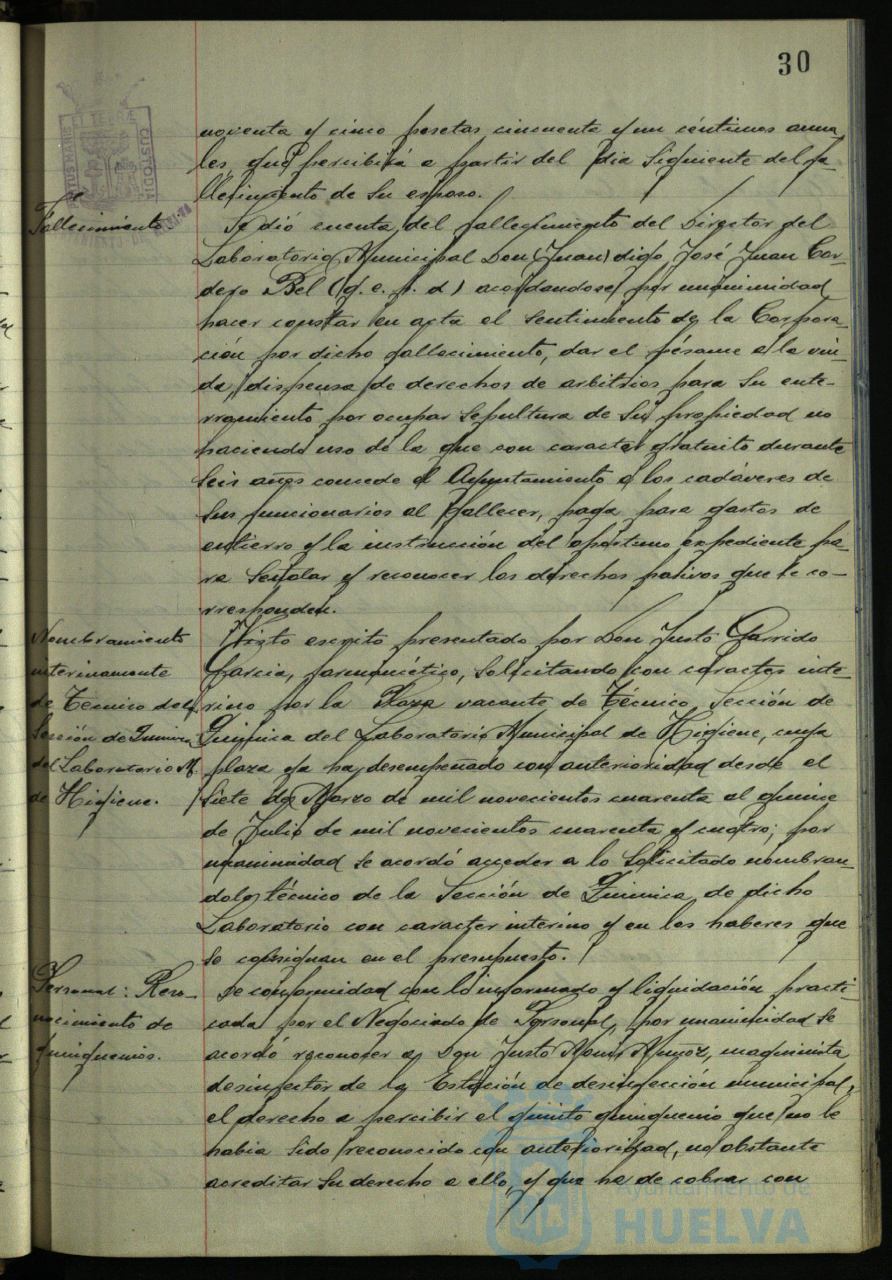 30
noventa y cinco pesetas cincuenta y un céntimos anua
les que percibirá a partir del dia siguiente del fa-
llecimiento de su esposo.
Fallecimiento
Se dió cuenta del fallecimiento del Director del
Laboratorio Municipal Don (Juan) digo José Juan Cor-
dero Bel (q. e. p. d) acordandose por unanimidad
hacer constar en acta el sentimiento de la Corpora-
ción por dicho fallecimiento, dar el pésame a la viu-
da, dispensa de derechos de arbitrios para su ente-
rramiento por ocupar sepultura de su propiedad no
haciendo uso de la que con caracter gratuito durante
seis años concede el Ayuntamiento a los cadáveres de
sus funcionarios al fallecer, paga para gastos de
entierro y la instrucción del oportuno expediente pa-
ra señalar y reconocer los derechos pasivos que le co-
rresponden.
Nombramiento
interinamente
de Técnico de la
Sección de Química
del Laboratorio M.
de Higiene.
Visto escrito presentado por Don Justo Garrido
Garcia, farmacéutico, solicitando con caracter inte-
rino por la Plaza vacante de Técnico Sección de
Quimica del Laboratorio Municipal de Higiene, cuya
plaza ya ha desempeñado con anterioridad desde el
siete de Marzo de mil novecientos cuarenta al quince
de Julio de mil novecientos cuarenta y cuatro; por
unanimidad se acordó acceder a lo solicitado nombran-
dole técnico de la Sección de Quimica de dicho
Laboratorio con caracter interino y en los haberes que
se consignan en el presupuesto.
Personal: Reco-
nocimiento de
quinquenios.
De conformidad con lo informado y liquidación practi-
cada por el Negociado de Personal, por unanimidad se
acordó reconocer a Don Justo Muñoz, maquinista
desinfector de la Estación de desinfección municipal,
el derecho a percibir el quinto quinquenio que no le
habia sido reconocido con anterioridad, no obstante
acreditar su derecho a ello, y que ha de cobrar con
Ayuntamiento de
HUELVA